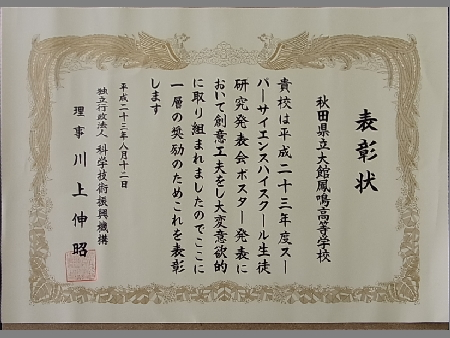 表彰状
秋田県立大館鳳鳴高等学校
貴校は平成二十三年度スー
パーサイエンスハイスクール生徒
研究発表会ポスター発表に
おいて創意工夫をし大変意欲的
に取り組まれましたのでここに
一層の奨励のためこれを表彰
します
平成二十三年八月十二日
独立行政法人 科学技術振興機構
理事 川上伸昭